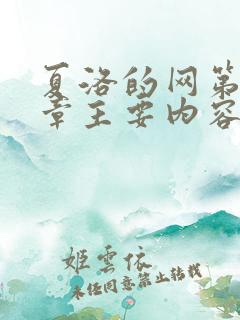 夏洛的网第
章主要内容
姬云依
未经同意禁止转载